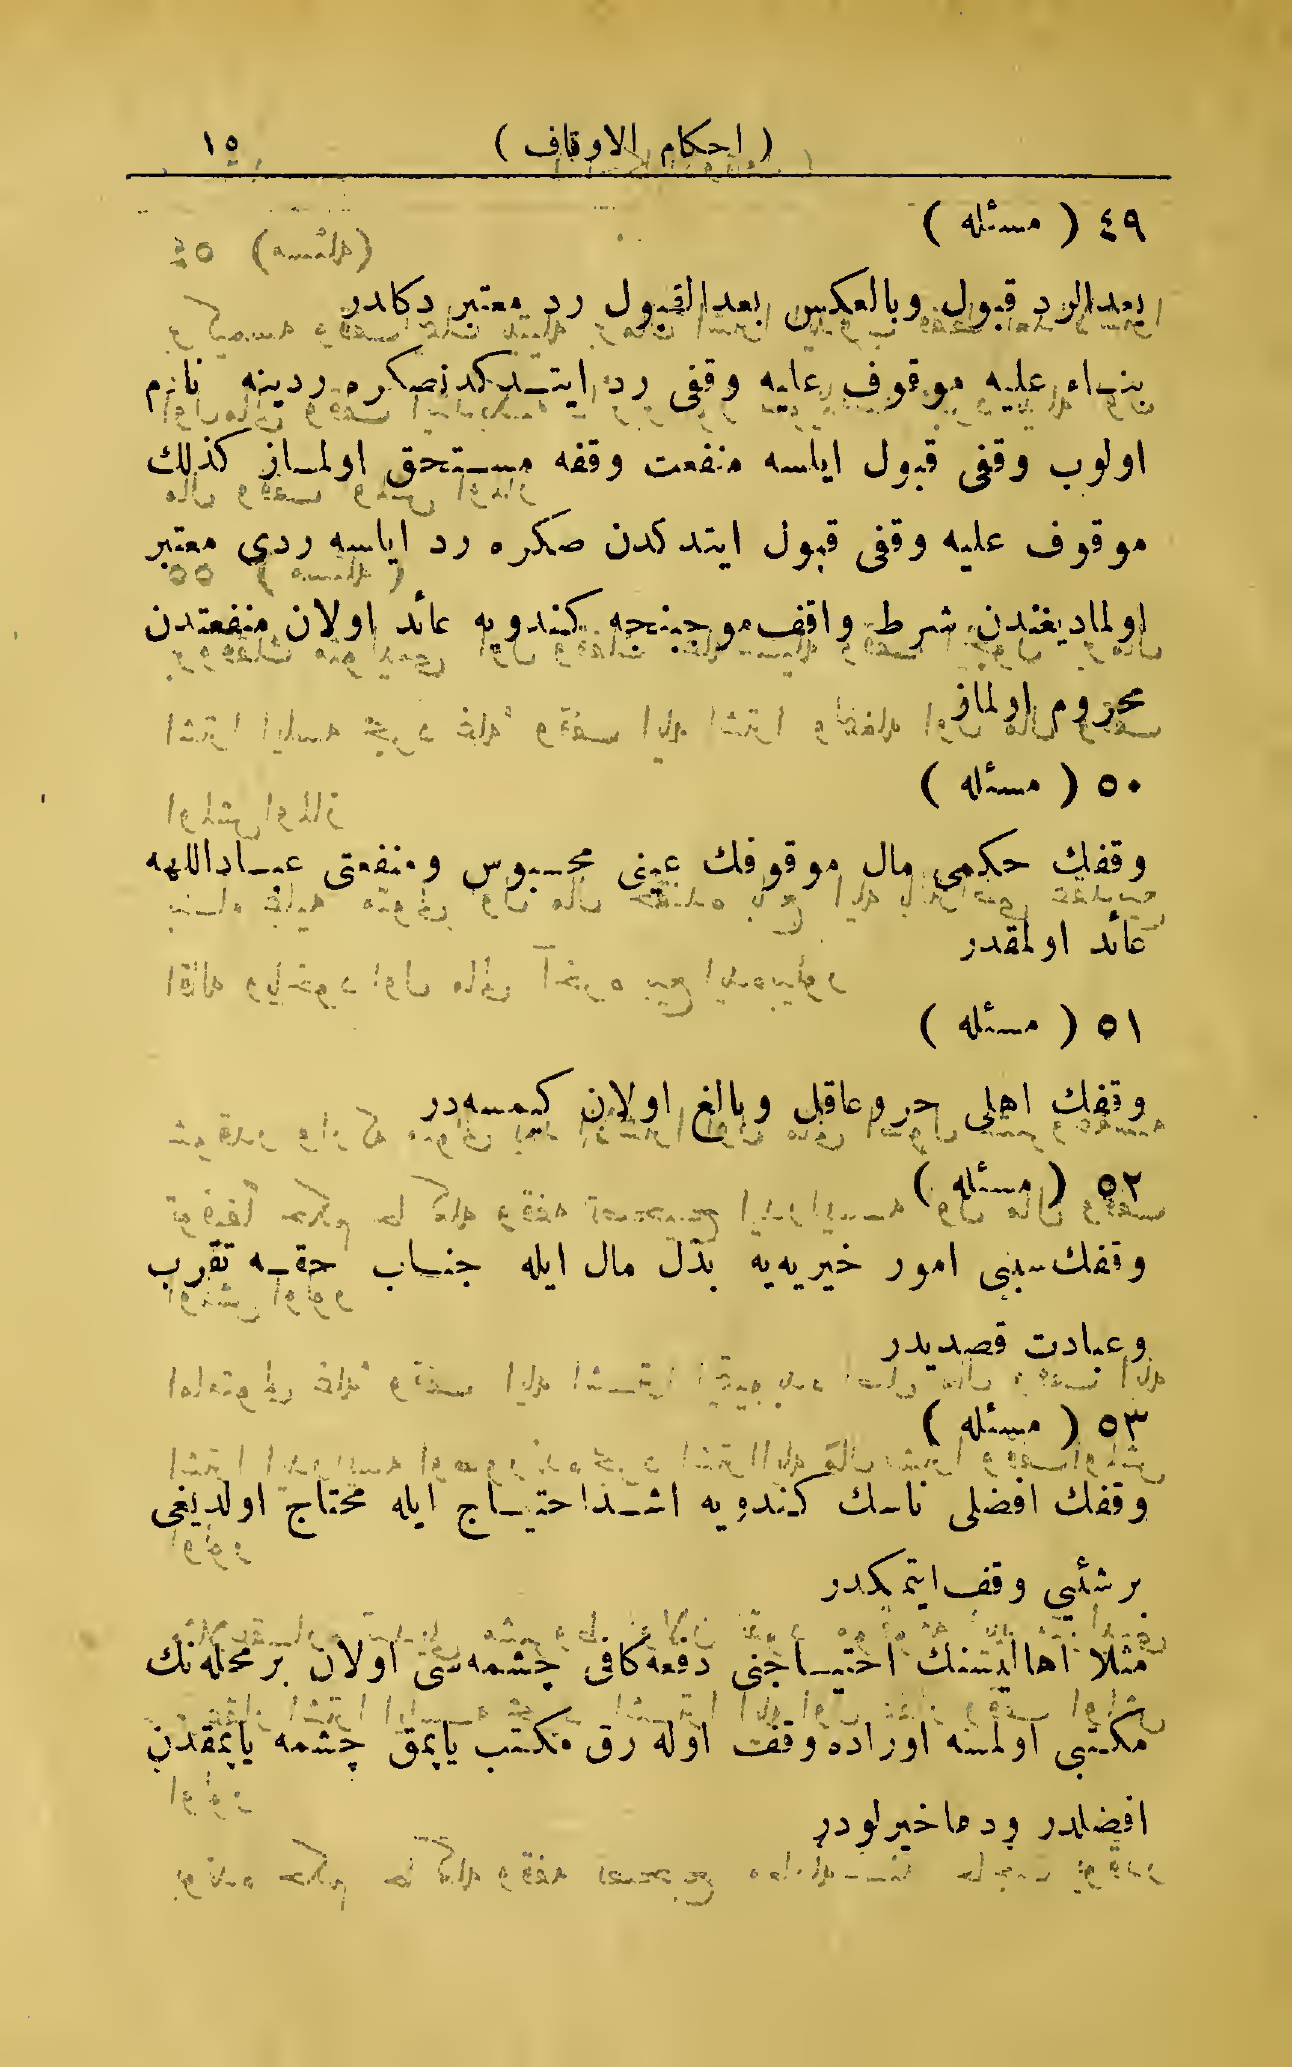 ( احكام الاوقاف ) ١٥
٤٩ ( مسئله )
بعدالرد قبول وبالعكس بعدالقبول رد معتبر دكلدر
بناء عليه موقوف عليه وقفى رد ايتدكدنصكره ردينه نادم
اولوب وقفى قبول ايلسه منفعت وقفه مستحق اولماز كذلك
موقوف عليه وقفى قبول ايتدكدن صكره رد ايلسه ردى معتبر
اولماديغندن شرط واقف موجبنجه كندويه عائد اولان منفعتدن
محروم اولماز
٥٠ ( مسئله )
وقفك حكمى مال موقوفك عينى محبوس ومنفعتى عباداللهه
عائد اولمقدر
٥١ ( مسئله )
وقفك اهلى حر وعاقل وبالغ اولان كيمسه‌در
٥٢ ( مسئله )
وقفك سببى امور خيريه‌يه بذل مال ايله جناب حقه تقرب
وعبادت قصديدر
٥٣ ( مسئله )
وقفك افضلى ناسك كندويه اشداحتياج ايله محتاج اولديغى
بر شئيى وقف ايتمكدر
مثلا اهاليسنك احتياجنى دفعه كافى چشمه‌سى اولان بر محله‌نك
مكتبى اولمسه اوراده وقفت اوله رق مكتب ياپمق چشمه ياپمقدن
افضلدر ودها خيرلودر